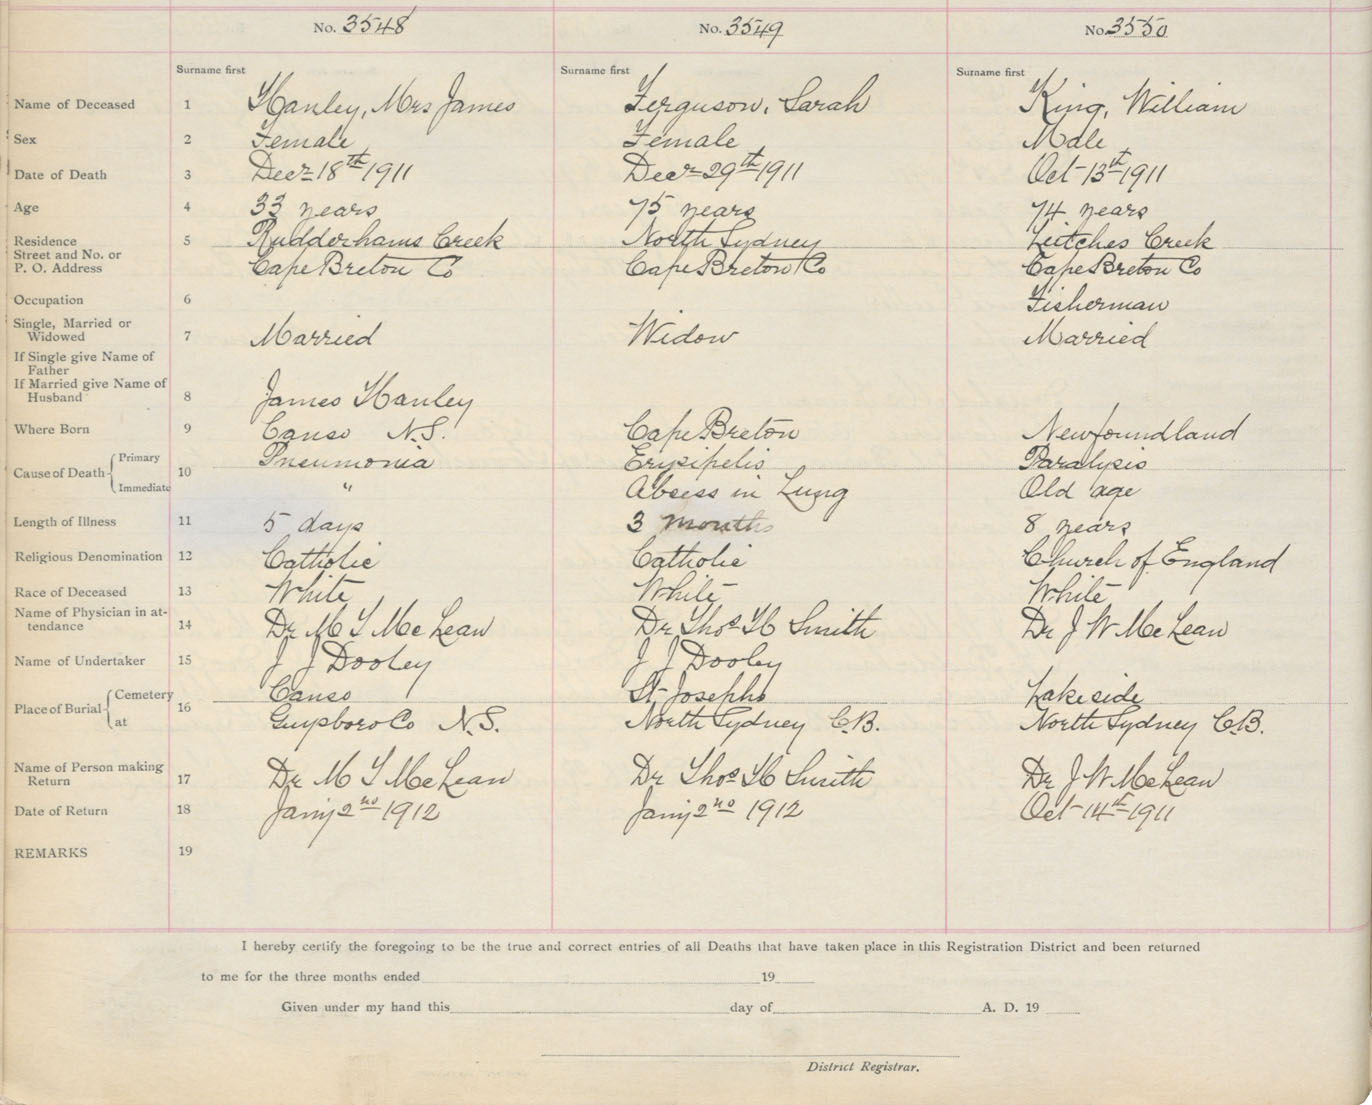 No. 3548 No. 3549 No. 3550
Surname first Surname first Surname first
Name of Deceased 1 Hanley, Mrs James Ferguson, Sarah King, William
Sex 2 Female Female Male
Date of Death 3 Decr 18th 1911 Decr 29th 1911 Oct 13th 1911
Age 4 33 years 75 years 74 years
Residence 5 Rudderhams Creek North Sydney Leitches Creek
Street and No. or
P. O. Address Cape Breton Co Cape Breton Co Cape Breton Co
Occupation 6 Fisherman
Single, Married or
Widowed 7 Married Widow Married
If Single give Name of
Father
If Married give Name of
Husband 8 James Hanley
Where Born 9 Canso N.S. Cape Breton Newfoundland
Cause of Death 10 Primary Pneumonia Erysipelis Paralysis
Immediate " Absess in Lung Old age
Length of Illness 11 5 days 3 months 8 years
Religious Denomination 12 Catholic Catholic Church of England
Race of Deceased 13 White White White
Name of Physician in at-
tendance 14 Dr M T McLean Dr Thos H Smith Dr J W McLean
Name of Undertaker 15 J J Dooley J J Dooley
Place of Burial 16 Cemetery Canso St Josephs Lakeside
at Guysboro Co N.S. North Sydney C.B. North Sydney C.B.
Name of Person making
Return 17 Dr M T McLean Dr Thos H Smith Dr J W McLean
Date of Return 18 Jany 2nd 1912 Jany 2nd 1912 Oct 14th 1911
REMARKS 19
I hereby certify the foregoing to be the true and correct entries of all Deaths that have taken place in this Registration District and been returned
to me for the three months ended 19
Given under my hand this day of A. D. 19
District Registrar.